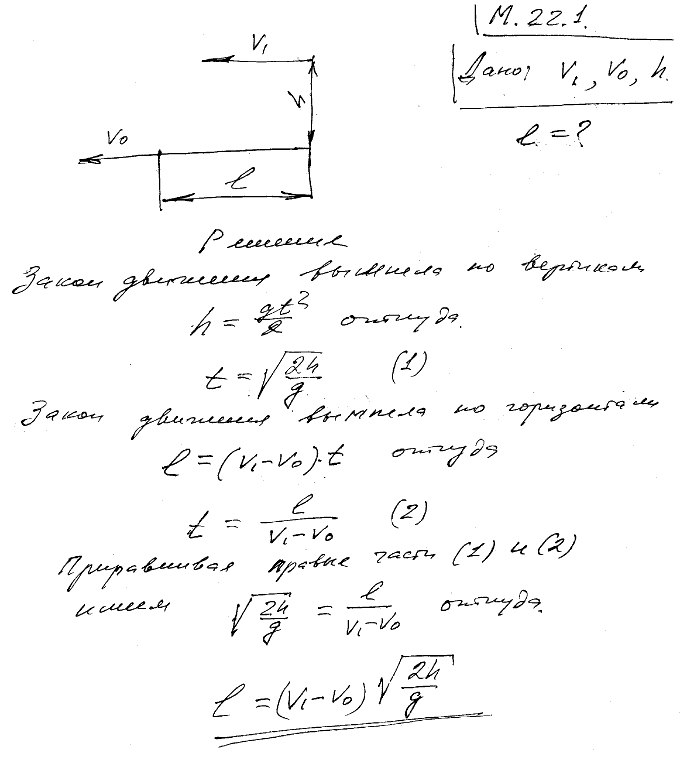 М. 22.1.
Дано: V₁, V₀, h.
l = ?
V₁
h
V₀
l
Решение
Закон движения вымпела по вертикали
h = gt²/2 откуда.
t = √(2h/g) (1)
Закон движения вымпела по горизонтали
l = (V₁–V₀)·t откуда
t = l/(V₁–V₀) (2)
Приравнивая правые части (1) и (2)
имеем √(2h/g) = l/(V₁–V₀) откуда.
l = (V₁–V₀)√(2h/g)